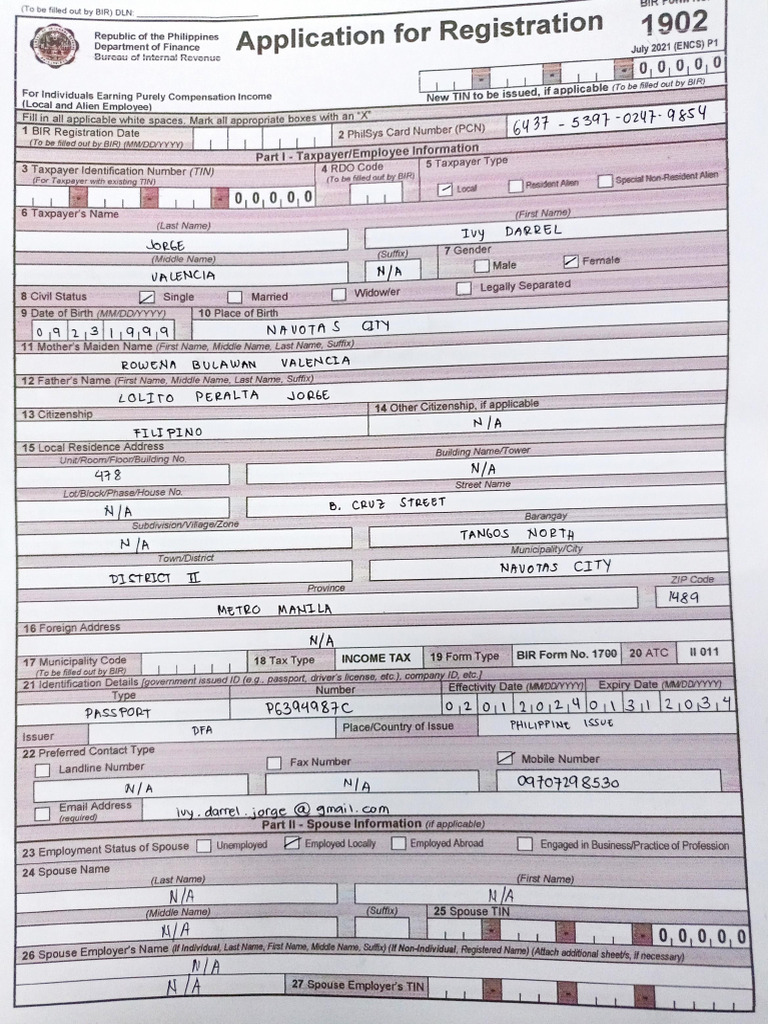 (To be filled out by BIR) DLN:
BIR Form No.
Republic of the Philippines
Department of Finance
Bureau of Internal Revenue
Application for Registration
1902
July 2021 (ENCS) P1
0,0,0,0,0
New TIN to be issued, if applicable (To be filled out by BIR)
For Individuals Earning Purely Compensation Income
(Local and Alien Employee)
Fill in all applicable white spaces. Mark all appropriate boxes with an "X"
1 BIR Registration Date
(To be filled out by BIR) (MM/DD/YYYY)
2 PhilSys Card Number (PCN) 6437 - 5397-0247-9854
Part I - Taxpayer/Employee Information
3 Taxpayer Identification Number (TIN)
(For Taxpayer with existing TIN)
0,0,0,0,0
4 RDO Code
(To be filled out by BIR)
5 Taxpayer Type
Local Resident Alien Special Non-Resident Alien
6 Taxpayer's Name
(Last Name) (First Name)
JORGE IVY DARREL
(Middle Name) (Suffix) 7 Gender
VALENCIA N/A Male Female
8 Civil Status Single Married Widow/er Legally Separated
9 Date of Birth (MM/DD/YYYY) 10 Place of Birth
0,9 2,3 1,9,9,9 NAVOTAS CITY
11 Mother's Maiden Name (First Name, Middle Name, Last Name, Suffix)
ROWENA BULAWAN VALENCIA
12 Father's Name (First Name, Middle Name, Last Name, Suffix)
LOLITO PERALTA JORGE
13 Citizenship 14 Other Citizenship, if applicable
FILIPINO N/A
15 Local Residence Address
Unit/Room/Floor/Building No. Building Name/Tower
478 N/A
Lot/Block/Phase/House No. Street Name
N/A B. CRUZ STREET
Subdivision/Village/Zone Barangay
N/A TANGOS NORTH
Town/District Municipality/City
DISTRICT II NAVOTAS CITY
Province ZIP Code
METRO MANILA 1489
16 Foreign Address
N/A
17 Municipality Code
(To be filled out by BIR)
18 Tax Type INCOME TAX 19 Form Type BIR Form No. 1700 20 ATC II 011
21 Identification Details [government issued ID (e.g., passport, driver's license, etc.), company ID, etc.]
Type Number Effectivity Date (MM/DD/YYYY) Expiry Date (MM/DD/YYYY)
PASSPORT P6394987C 0,2 0,1 2,0,2,4 0,1 3,1 2,0,3,4
Issuer DFA Place/Country of Issue PHILIPPINE ISSUE
22 Preferred Contact Type
Landline Number Fax Number Mobile Number
N/A N/A 09707298530
Email Address
(required)
ivy.darrel.jorge@gmail.com
Part II - Spouse Information (if applicable)
23 Employment Status of Spouse Unemployed Employed Locally Employed Abroad Engaged in Business/Practice of Profession
24 Spouse Name
(Last Name) (First Name)
N/A N/A
(Middle Name) (Suffix) 25 Spouse TIN
N/A 0,0,0,0,0
26 Spouse Employer's Name (If Individual, Last Name, First Name, Middle Name, Suffix) (If Non-Individual, Registered Name) (Attach additional sheet/s, if necessary)
N/A
N/A 27 Spouse Employer's TIN